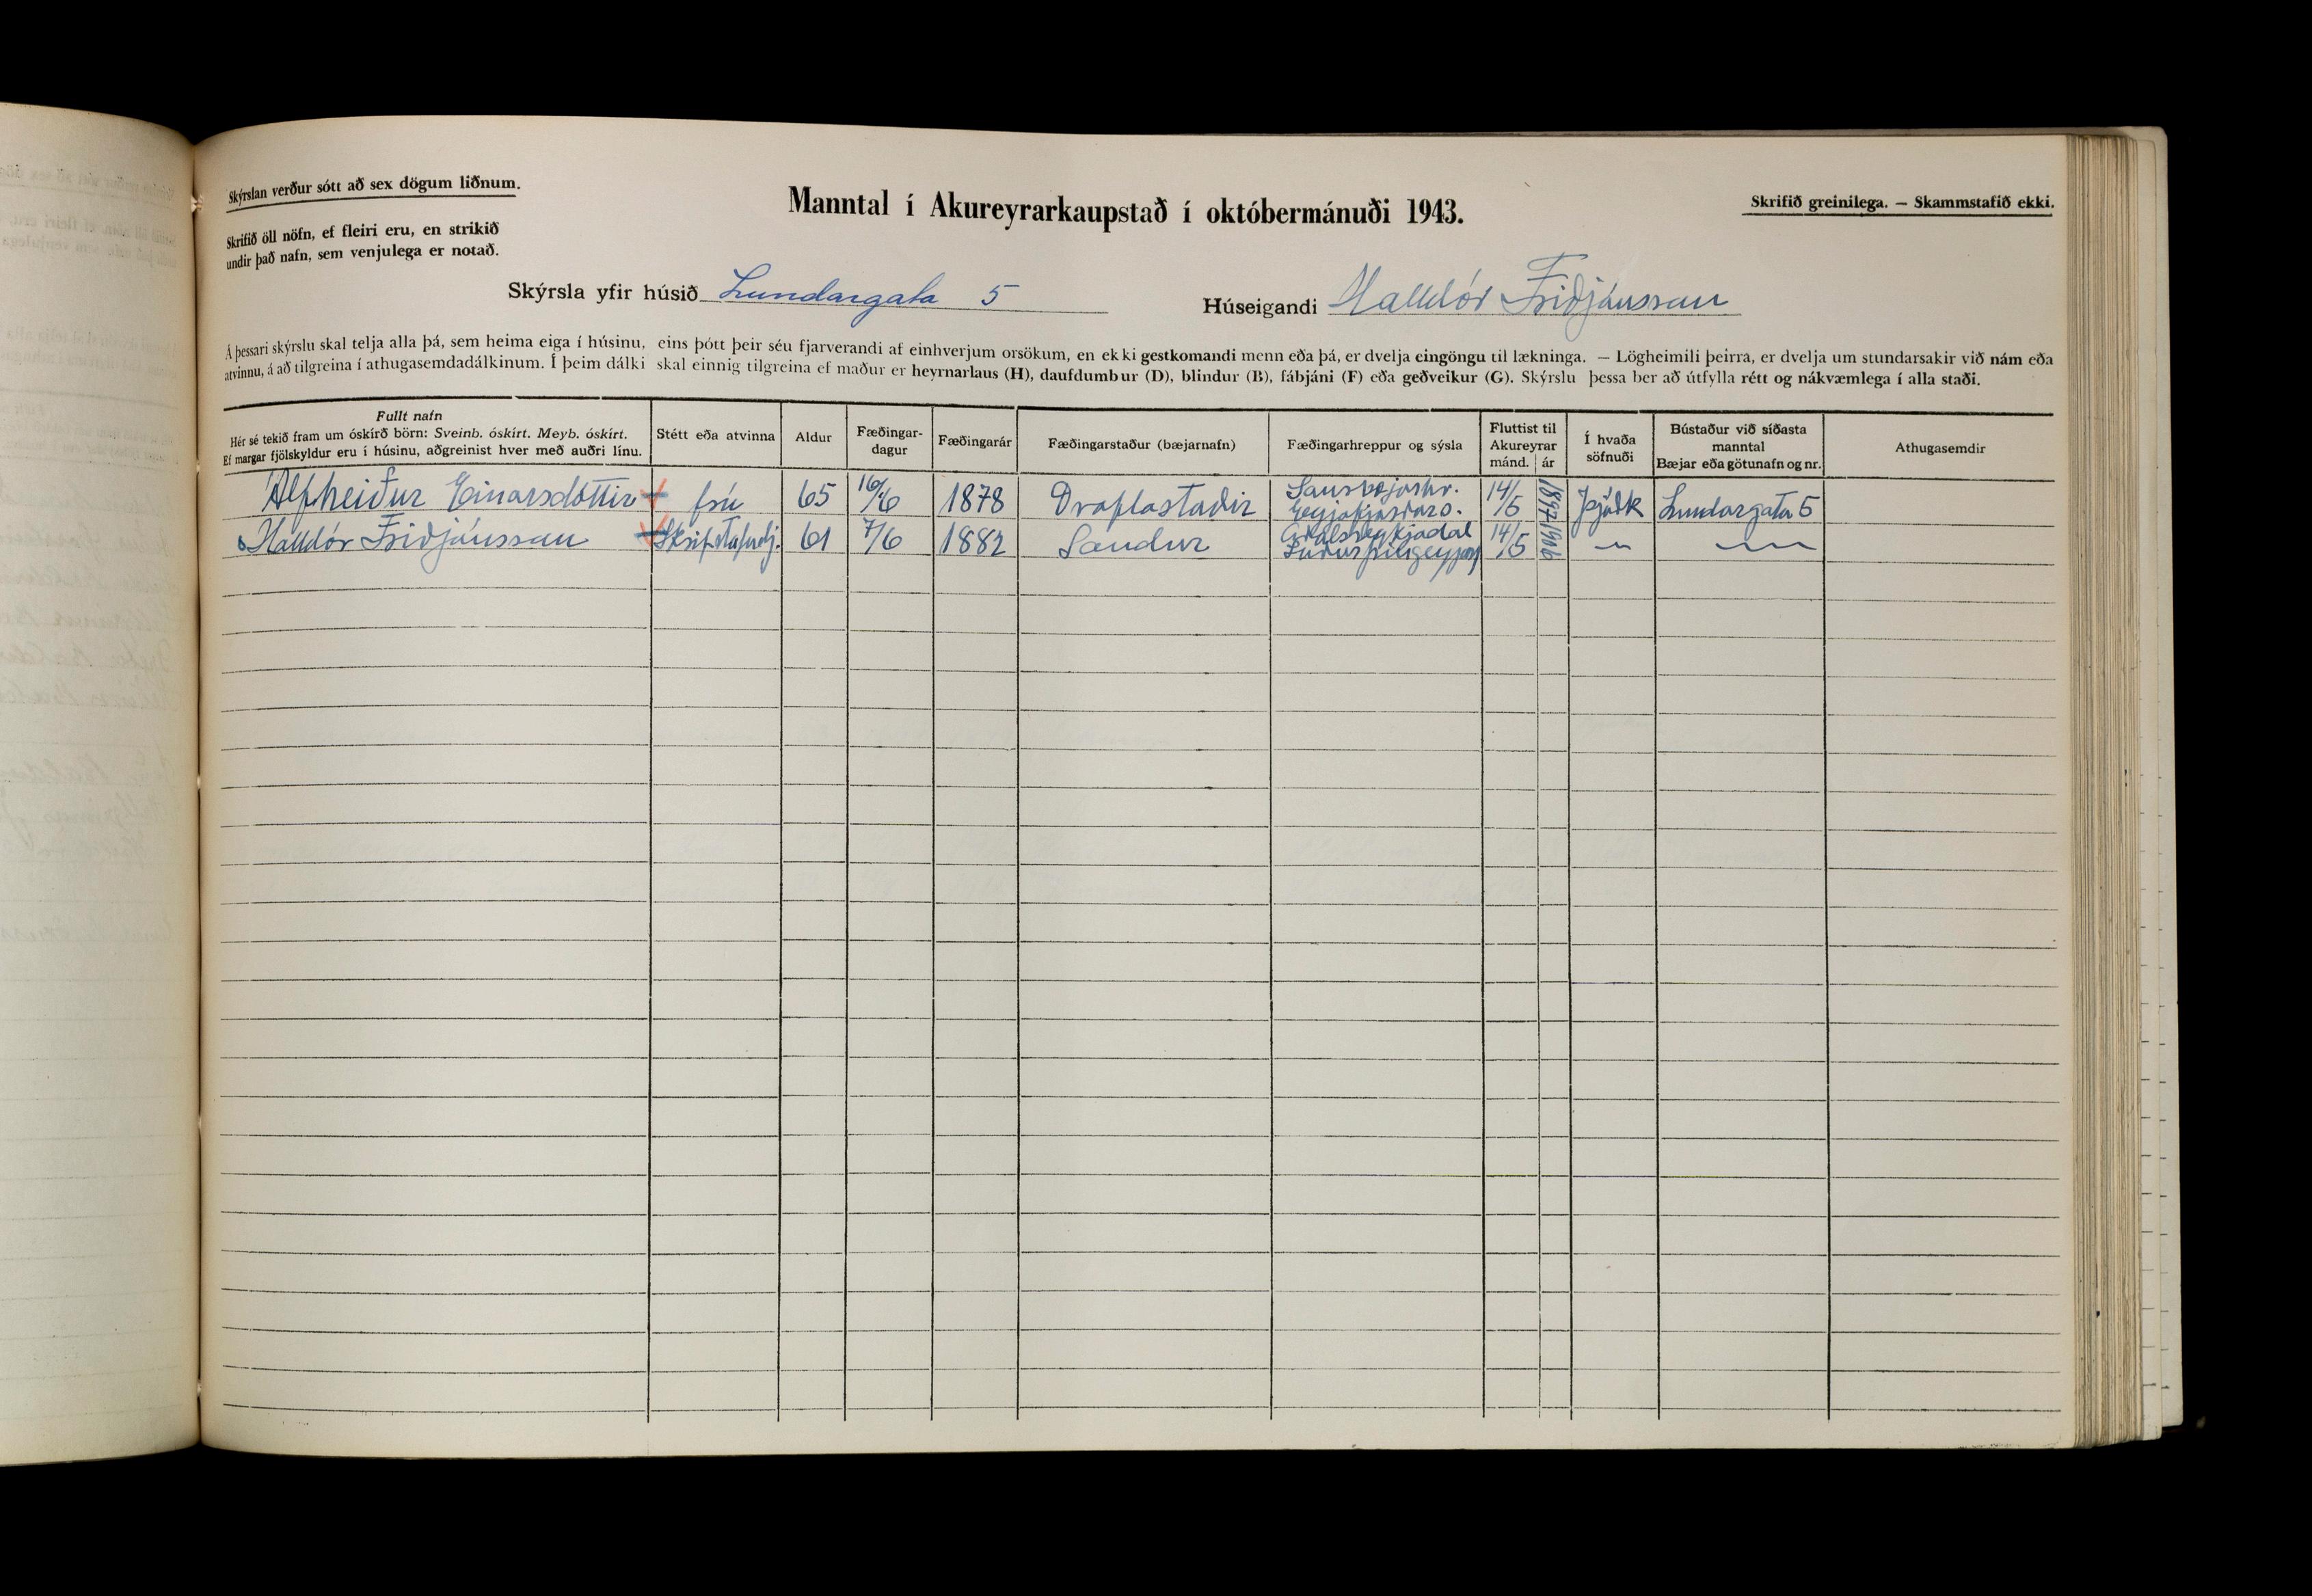 Skýrslan verður sótt að sex dögum liðnum.
Skrifið öll nöfn, ef fleiri eru, en strikið
undir það nafn, sem venjulega er notað.
Manntal í Akureyrarkaupstað í októbermánuði 1943.
Skrifið greinilega. — Skammstafið ekki.
Skýrsla yfir húsið Lundargata 5
Húseigandi Halldór Friðjónsson
Á þessari skýrslu skal telja alla þá, sem heima eiga í húsinu, eins þótt þeir séu fjarverandi af einhverjum orsökum, en ekki gestkomandi menn eða þá, er dvelja eingöngu til lækninga. — Lögheimili þeirra, er dvelja um stundarsakir við nám eða
atvinnu, á að tilgreina í athugasemdadálkinum. Í þeim dálki skal einnig tilgreina ef maður er heyrnarlaus (H), daufdumbur (D), blindur (B), fábjáni (F) eða geðveikur (G). Skýrslu þessa ber að útfylla rétt og nákvæmlega í alla staði.
Fullt nafn
Hér sé tekið fram um óskírð börn: Sveinb. óskírt. Meyb. óskírt.
Ef margar fjölskyldur eru í húsinu, aðgreinist hver með auðri línu.
Stétt eða atvinna
Aldur
Fæðingar-
dagur
Fæðingarár
Fæðingarstaður (bæjarnafn)
Fæðingarhreppur og sýsla
Fluttist til
Akureyrar
mánd. ár
Í hvaða
söfnuði
Bústaður við síðasta
manntal
Bæjar eða götunafn og nr.
Athugasemdir
Álfheiður Einarsdóttir frú 65 16/6 1878 Draflastaðir 14/5 1897 Þjóðk Lundargata 5
Halldór Friðjónsson 61 7/6 1882 Sandur 14/5 1906 〃 〃